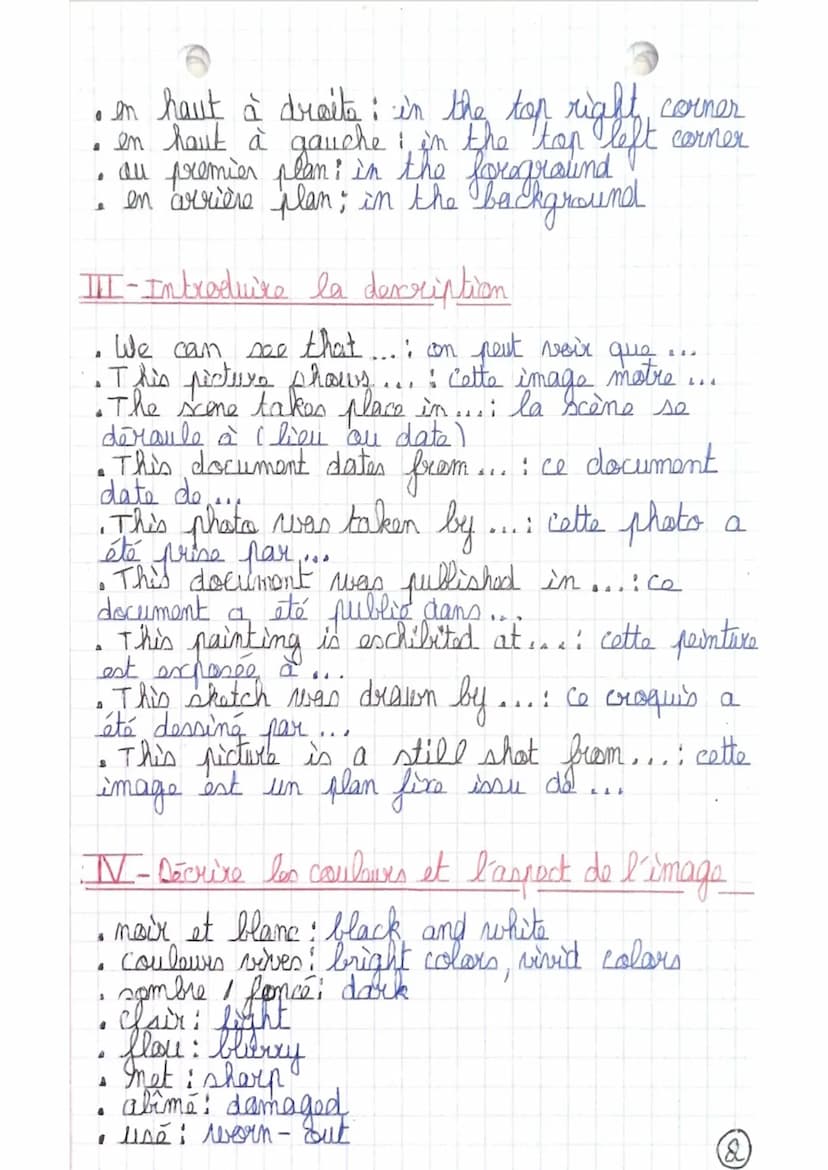 • en haut à droite : in the top right corner
• en haut à gauche : in the top left corner
• au premier plan : in the foreground
• en arrière plan : in the background
III - Introduire la description
• We can see that ... : on peut voir que ...
• This picture shows ... : cette image motre ...
• The scene takes place in ... : la scène se
déroule à (lieu ou date)
• This document dates from ... : ce document
date de ...
• This photo was taken by ... : cette photo a
été prise par ...
• This document was published in ... : ce
document a été publié dans ...
• This painting is exhibited at ... : cette peinture
est exposée à ...
• This sketch was drawn by ... : ce croquis a
été dessiné par ...
• This picture is a still shot from ... : cette
image est un plan fixe issu de ...
IV - Décrire les couleurs et l'aspect de l'image
• noir et blanc : black and white
• couleurs vives : bright colors, vivid colors
• sombre / foncé : dark
• clair : light
• flou : blurry
• net : sharp
• abîmé : damaged
• usé : worn-out
2